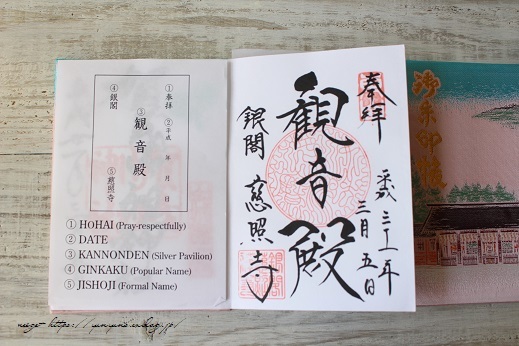 ④銀閣
③観音殿
①奉拝
②平成 年 月 日
⑤慈照寺
① HOHAI (Pray-respectfully)
② DATE
③ KANNONDEN (Silver Pavilion)
④ GINKAKU (Popular Name)
⑤ JISHOJI (Formal Name)
奉拝
平成三十一年
三月五日
観音殿
銀閣 慈照寺
御朱印帳